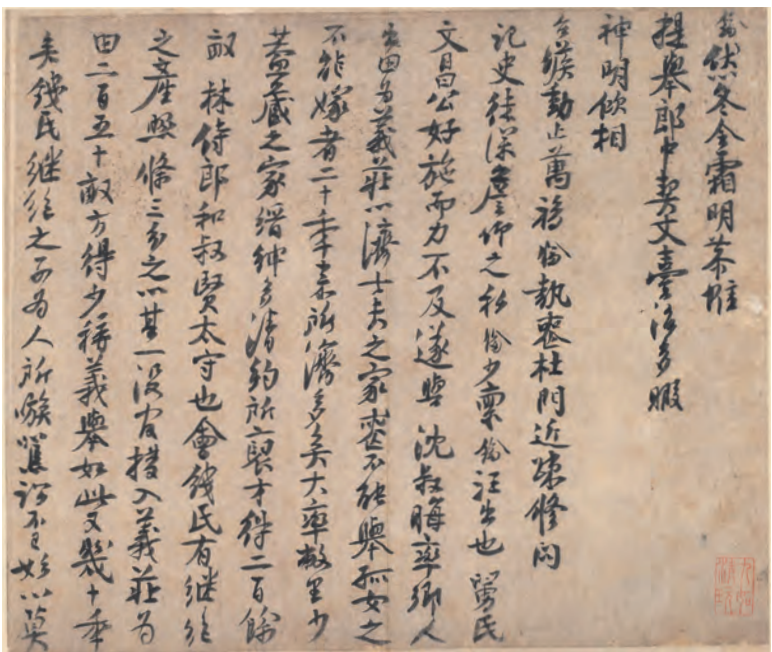 鑰伏冬令霜明恭惟
提舉郎中契丈臺治多暇
神明攸相
台候動止萬福鑰執喪杜門近疎修問
記史徒深詹仰之私鑰少稟鑰汪出也舅氏
文昌公好施而力不及遂與沈叔晦率鄉人
出田為義莊以濟士夫之家喪不能舉孤女之
不能嫁者二十年來所濟多矣大率敝里少
蓋藏之家縉紳多清約所裒才得二百餘
畝林侍郎和叔賢太守也會錢氏有繼絕
之產照條三分之以其一沒官撥入義莊為
田二百五十畝方得少稱義舉如此又幾十年
矣錢氏繼絕之子為人所嗾篤訟不已始以莫